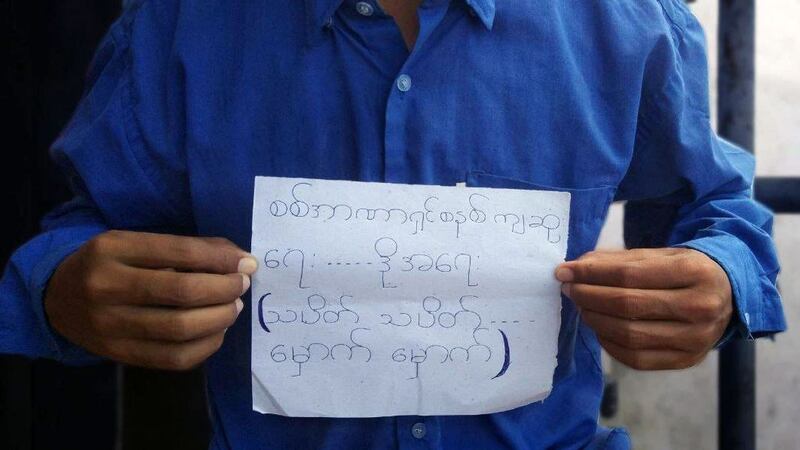 စစ်အာဏာရှင်စနစ် ကျဆုံး
ရေး ..... ဒို့အရေး
(သပိတ် သပိတ် ....
မှောက် မှောက်)